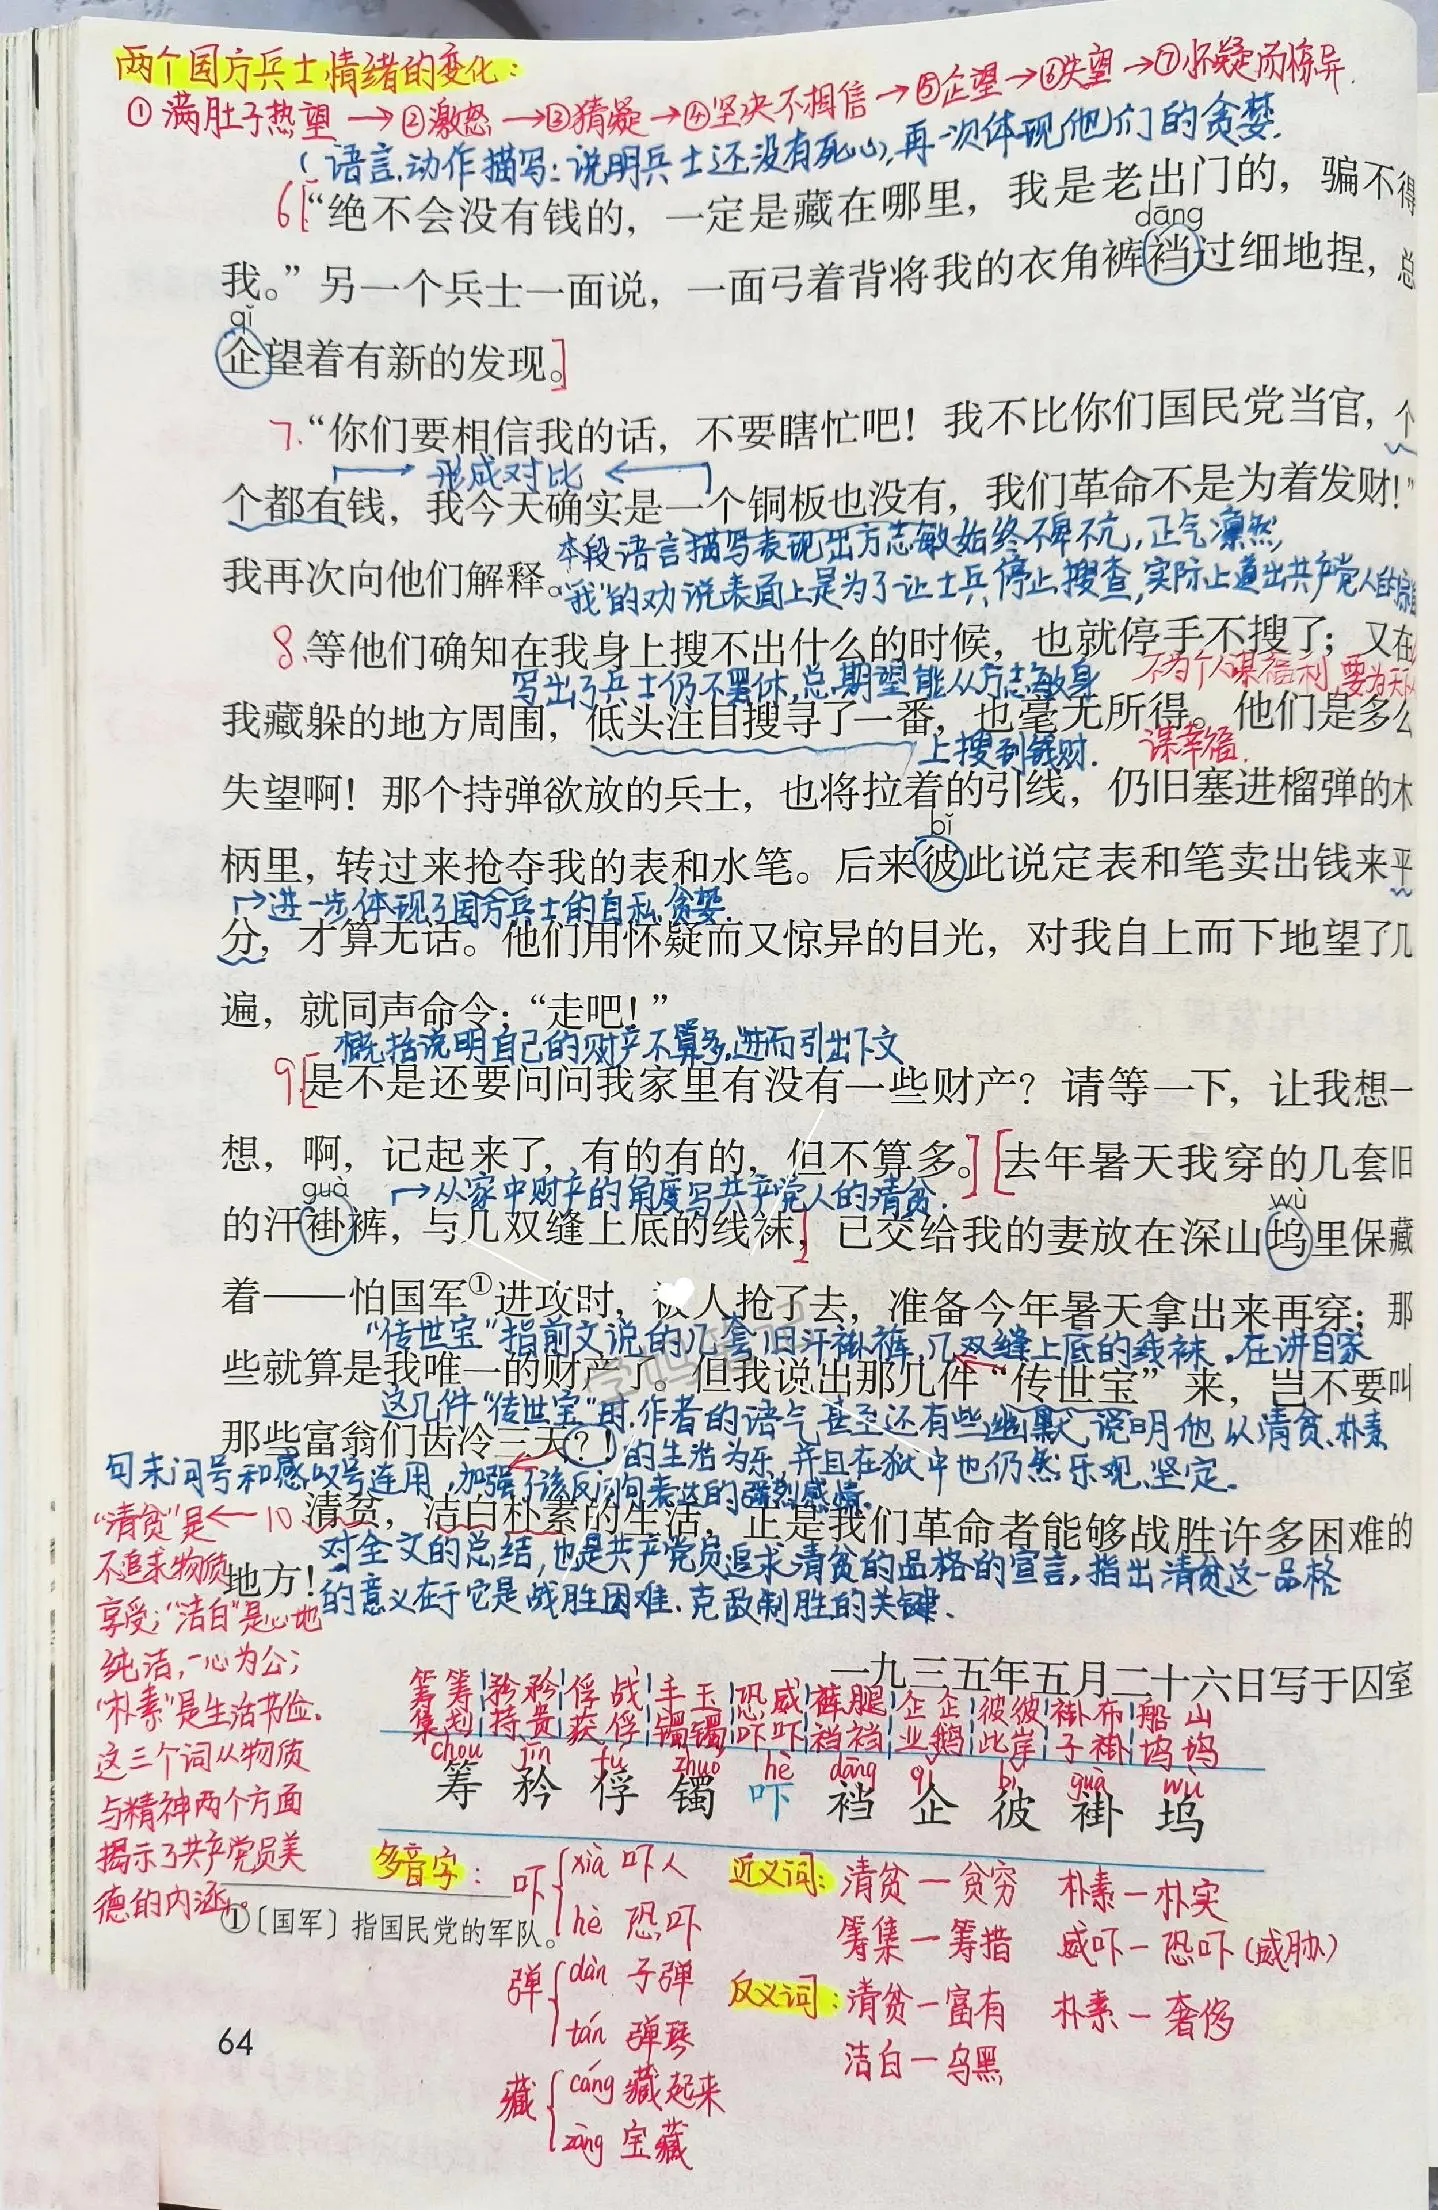 两个国方兵士情绪的变化：
①满肚子热望→②激怒→③猜疑→④坚决不相信→⑤企望→⑥失望→⑦怀疑而惊异.
(语言.动作描写：说明兵士还没有死心,再一次体现他们的贪婪.
6[“绝不会没有钱的，一定是藏在哪里，我是老出门的，骗不得
dāng
我。”另一个兵士一面说，一面弓着背将我的衣角裤裆过细地捏，总
qǐ
企望着有新的发现。]
7.“你们要相信我的话，不要瞎忙吧！我不比你们国民党当官，个
形成对比
个都有钱，我今天确实是一个铜板也没有，我们革命不是为着发财！”
本段语言描写表现出方志敏始终不卑不亢,正气凛然,
我再次向他们解释。
“我”的劝说表面上是为了让士兵停止搜查,实际上道出共产党人的宗旨
8.等他们确知在我身上搜不出什么的时候，也就停手不搜了；又在
写出了兵士仍不罢休,总期望能从方志敏身
不为个人谋福利,要为天下人
我藏躲的地方周围，低头注目搜寻了一番，也毫无所得。他们是多么
上搜到钱财.
谋幸福.
失望啊！那个持弹欲放的兵士，也将拉着的引线，仍旧塞进榴弹的木
bǐ
柄里，转过来抢夺我的表和水笔。后来彼此说定表和笔卖出钱来平
→进一步体现了国方兵士的自私.贪婪.
分，才算无话。他们用怀疑而又惊异的目光，对我自上而下地望了几
遍，就同声命令：“走吧！”
概括说明自己的财产不算多,进而引出下文
9.[是不是还要问问我家里有没有一些财产？请等一下，让我想一
想，啊，记起来了，有的有的，但不算多。][去年暑天我穿的几套旧
guà
→从家中财产的角度写共产党人的清贫.
wù
的汗褂裤，与几双缝上底的线袜，]已交给我的妻放在深山坞里保藏
着——怕国军①进攻时，被人抢了去，准备今年暑天拿出来再穿；那
“传世宝”指前文说的几套旧汗褂裤,几双缝上底的线袜,在讲自家
些就算是我唯一的财产了。但我说出那几件“传世宝”来，岂不要叫
学鸣笔记
这几件“传世宝”时,作者的语气甚至还有些幽默,说明他从清贫.朴素
那些富翁们齿冷三天？！
的生活为乐,并且在狱中也仍然乐观.坚定.
句末问号和感叹号连用,加强了该反问句表达的强烈感情.
10清贫，洁白朴素的生活，正是我们革命者能够战胜许多困难的
对全文的总结,也是共产党员追求清贫的品格的宣言,指出清贫这一品格
地方！
的意义在于它是战胜困难.克敌制胜的关键.
“清贫”是←
不追求物质
享受；“洁白”是心地
纯洁,一心为公；
“朴素”是生活节俭.
这三个词从物质
与精神两个方面
揭示了共产党员美
德的内涵。
一九三五年五月二十六日写于囚室
筹筹|矜矜|俘战|手玉|恐威|裤腿|企企|彼彼|褂布|船山
集划|持贵|获俘|镯镯|吓吓|裆裆|业鹅|此岸|子褂|坞坞
chóu jīn fú zhuó hè dāng qǐ bǐ guà wù
筹 矜 俘 镯 吓 裆 企 彼 褂 坞
多音字：
吓{xià 吓人
hè 恐吓
弹{dàn 子弹
tán 弹琴
藏{cáng 藏起来
zàng 宝藏
近义词：清贫—贫穷 朴素—朴实
筹集—筹措 威吓—恐吓(威胁)
反义词：清贫—富有 朴素—奢侈
洁白—乌黑
①〔国军〕指国民党的军队。
64